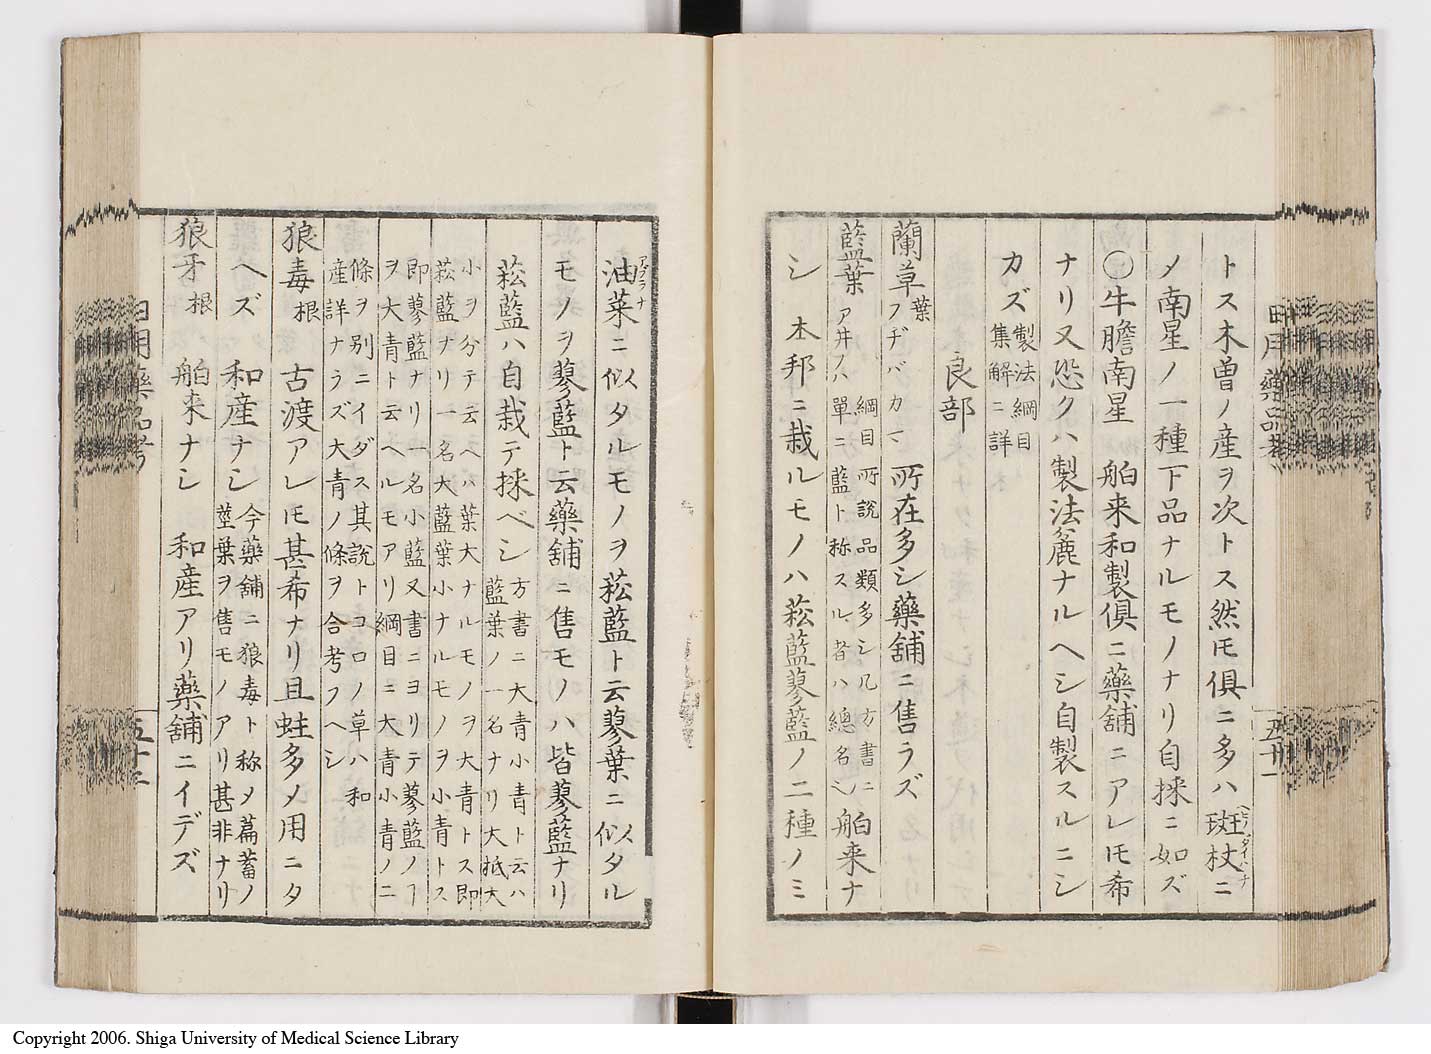 トス木曽ノ産ヲ次トス然𪜈俱ニ多ハ斑杖ニ
メ南星ノ一種下品ナルモノナリ自採ニ如ズ
〇牛膽南星　舶来和製俱ニ藥舗ニアレ𪜈希
ナリ又恐クハ製法麁ナルヘシ自製スルニシ
カズ製法綱目
集解ニ詳
良部
蘭草葉フヂバカマ　所在多シ藥舗ニ售ラズ
藍葉アヰノハ　綱目所説品類多シ凡方書ニ
單ニ藍ト称スル者ハ總名也　舶来ナ
シ　本邦ニ栽ルモノハ菘藍蓼藍ノ二種ノミ
日用藥品考
五十一
油菜ニ似タルモノヲ菘藍ト云蓼葉ニ似タル
アブラナ
モノヲ蓼藍ト云藥舗ニ售モノハ皆蓼藍ナリ
菘藍ハ自栽テ採ベシ方書ニ大青小青ト云ハ
藍葉ノ一名ナリ大抵大
小ヲ分テ云ヘハ葉大ナルモノヲ大青トス即
菘藍ナリ一名大藍葉小ナルモノヲ小青トス
即蓼藍ナリ一名小藍又書ニヨリテ蓼藍ノヿ
ヲ大青ト云ヘルモアリ綱目ニ大青小青ノ二
條ヲ別ニイダス其説トコロノ草ハ和
産詳ナラズ大青ノ條ヲ合考フヘシ
狼毒根　古渡アレ𪜈甚希ナリ且蛀多メ用ニタ
ヘズ　和産ナシ今藥舗ニ狼毒ト称メ萹蓄ノ
莖葉ヲ售モノアリ甚非ナリ
狼牙根　舶来ナシ　和産アリ藥舗ニイデズ
日用藥品考
Copyright 2006. Shiga University of Medical Science Library